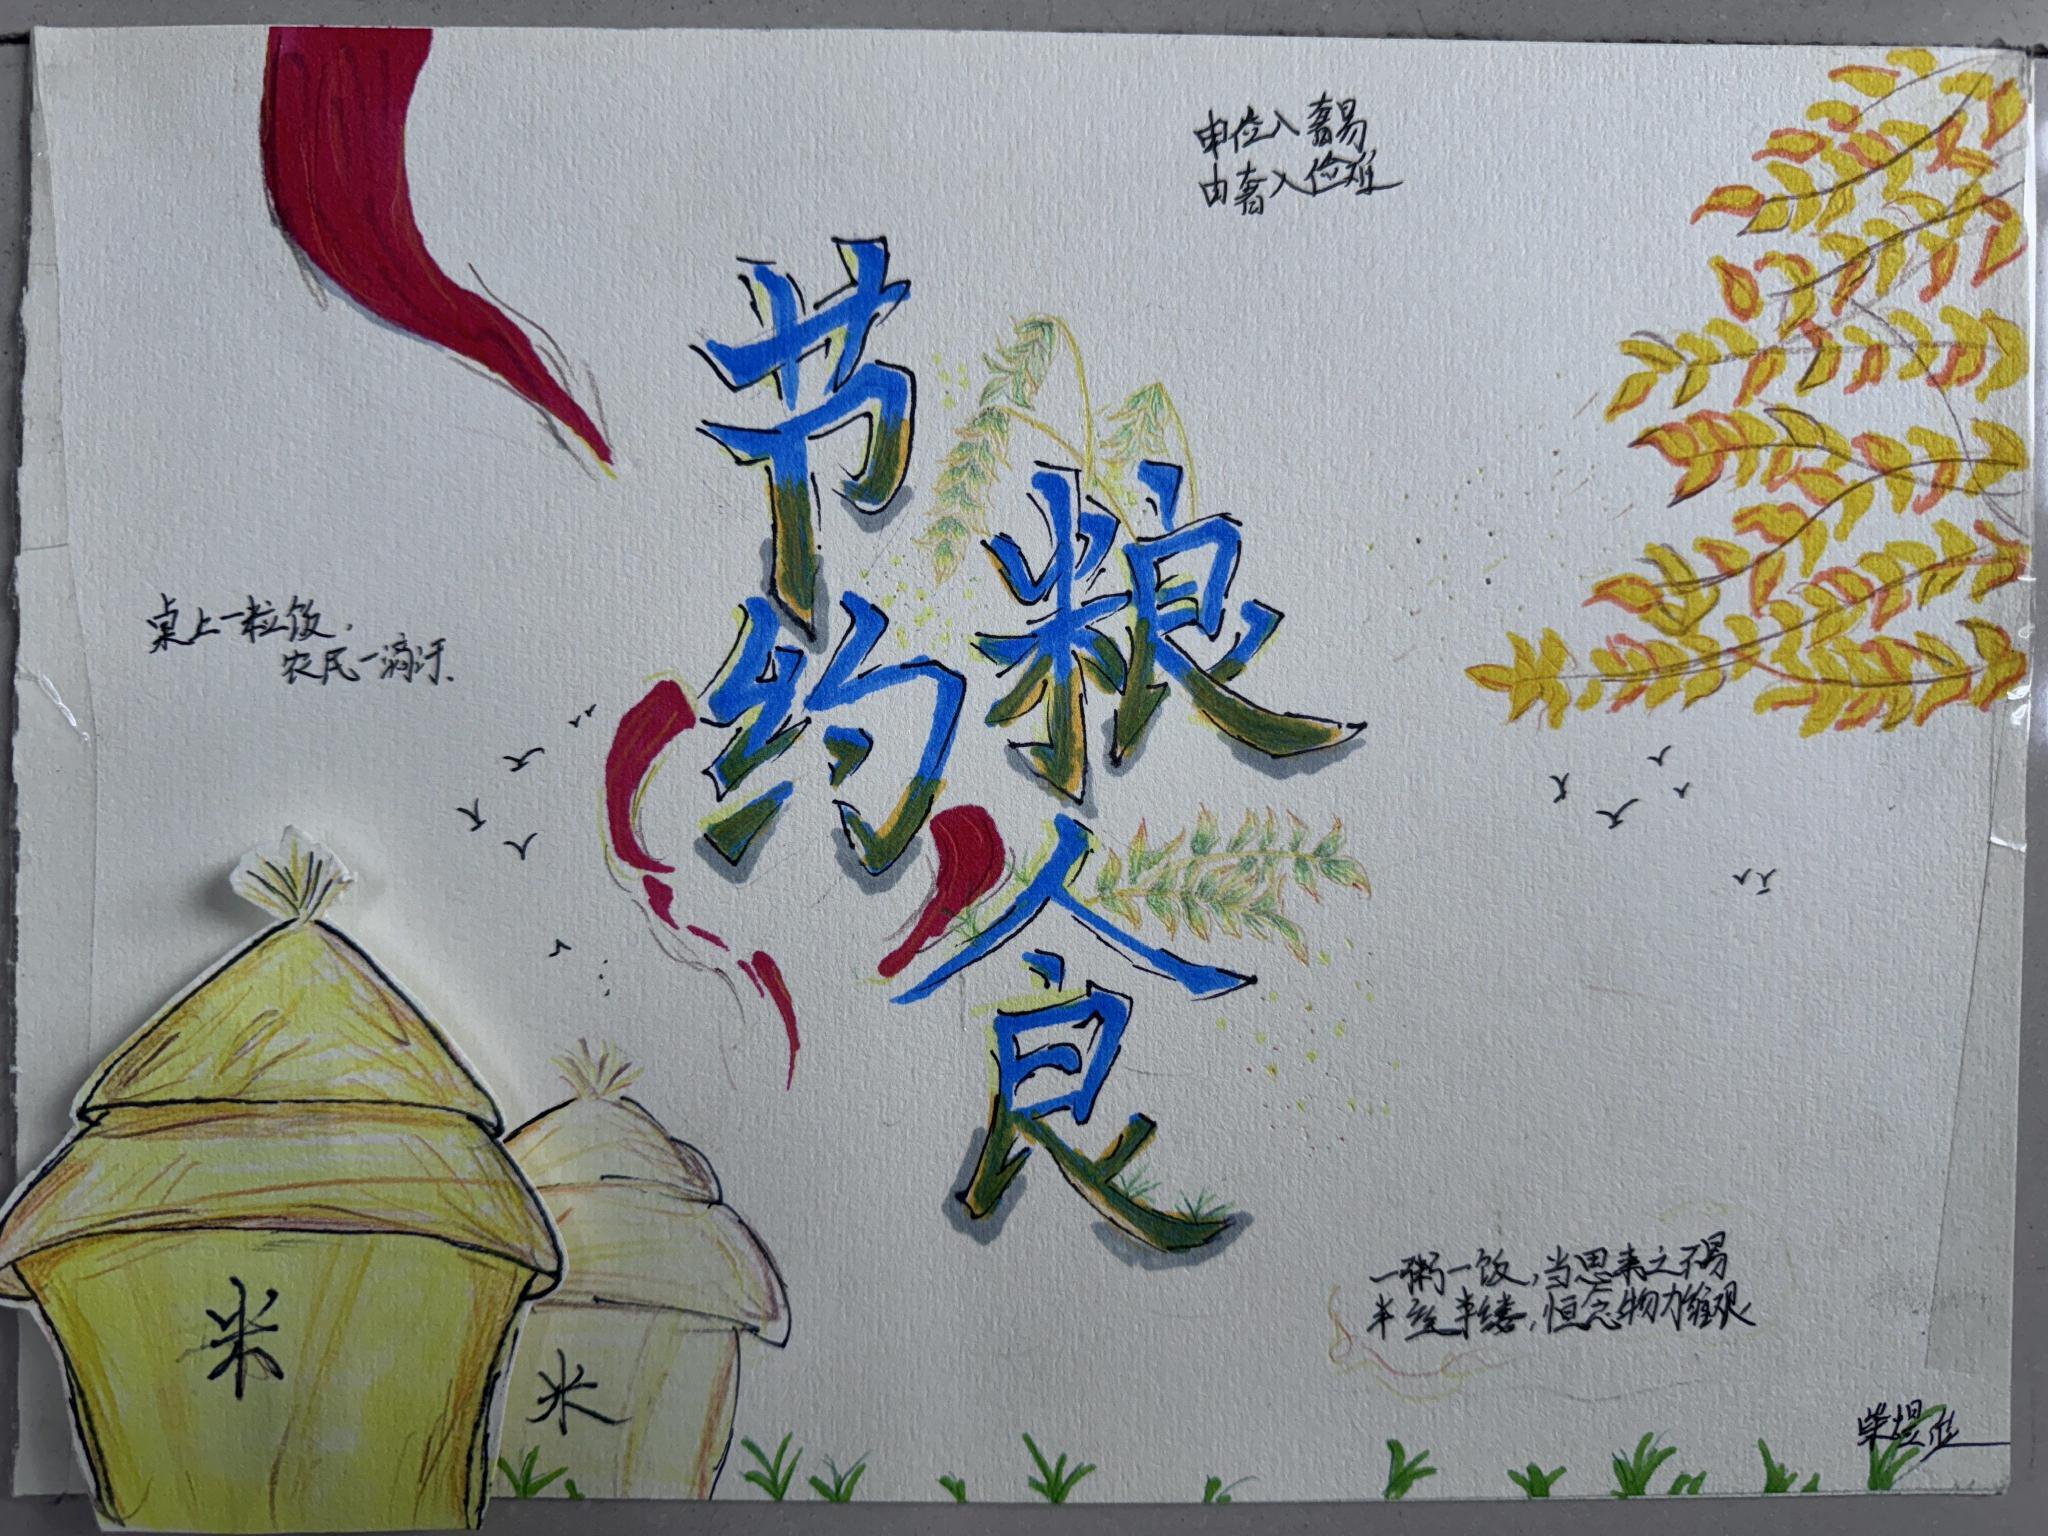 由俭入奢易
由奢入俭难
节约
粮食
桌上一粒饭，
农民一滴汗.
米
米
一粥一饭，当思来之不易
半丝半缕，恒念物力维艰